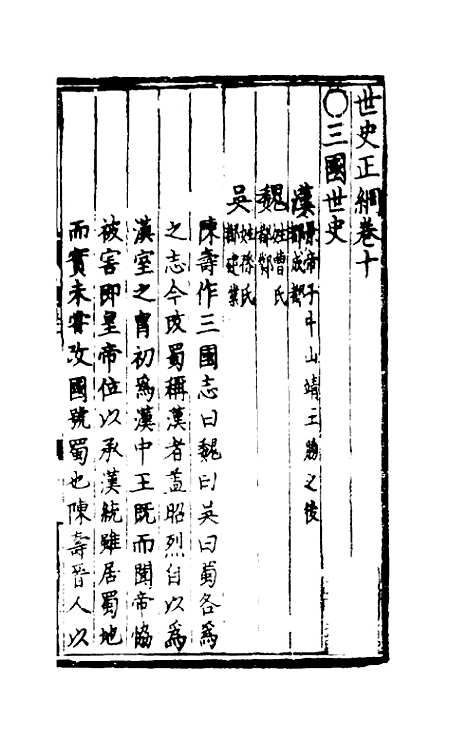 世史正綱卷十
〇三國世史
漢景帝子中山靖王勝之後
都成都
魏姓曹氏
都鄴
吳姓孫氏
都建業
陳壽作三國志曰魏曰吳曰蜀各爲
之志今改蜀稱漢者蓋昭烈自以爲
漢室之胄初爲漢中王旣而聞帝協
被害即皇帝位以承漢統雖居蜀地
而實未嘗改國號蜀也陳壽晉人以